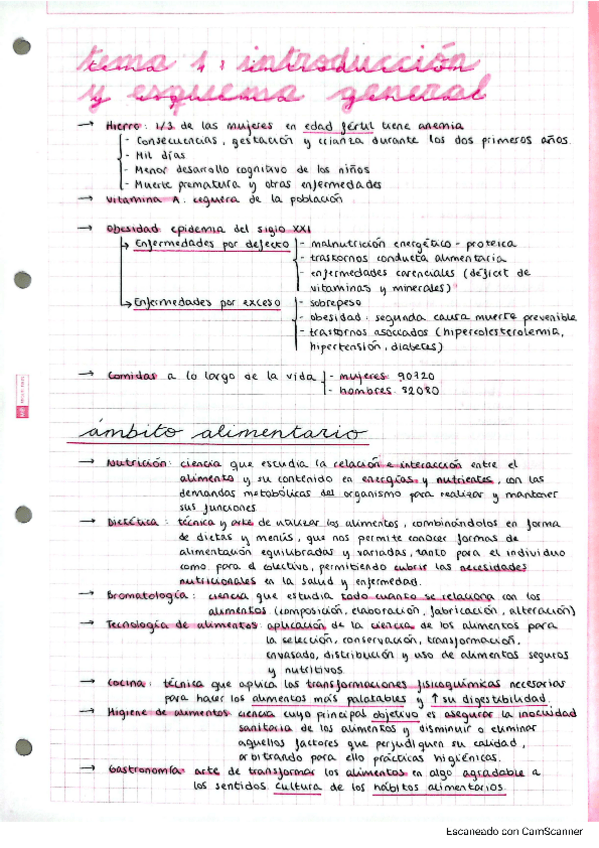 tema 1: introducción
y esquema general
→ Hierro: 1/3 de las mujeres en edad fértil tiene anemia
- Consecuencias, gestación y crianza durante los dos primeros años.
- Mil días
- Menor desarrollo cognitivo de los niños
- Muerte prematura y otras enfermedades
→ Vitamina A: ceguera de la población
→ Obesidad epidemia del siglo XXI
Enfermedades por defecto - malnutrición energético-proteica
- trastornos conducta alimentaria
- enfermedades carenciales (déficit de
vitaminas y minerales)
Enfermedades por exceso - sobrepeso
- obesidad: segunda causa muerte prevenible
- trastornos asociados (hipercolesterolemia,
hipertensión, diabetes)
→ Comidas a lo largo de la vida - mujeres: 90720
- hombres: 82080
ámbito alimentario
→ Nutrición: ciencia que estudia la relación e interacción entre el
alimento y su contenido en energías y nutrientes, con las
demandas metabólicas del organismo para realizar y mantener
sus funciones
→ Dietética: técnica y arte de utilizar los alimentos, combinándolos en forma
de dietas y menús, que nos permite conocer formas de
alimentación equilibradas y variadas, tanto para el individuo
como para el colectivo, permitiendo cubrir las necesidades
nutricionales en la salud y enfermedad.
→ Bromatología: ciencia que estudia todo cuanto se relaciona con los
alimentos (composición, elaboración, fabricación, alteración)
→ Tecnología de alimentos: aplicación de la ciencia de los alimentos para
la selección, conservación, transformación,
envasado, distribución y uso de alimentos seguros
y nutritivos.
→ Cocina: técnica que aplica las transformaciones fisicoquímicas necesarias
para hacer los alimentos más palatables y ↑ su digestibilidad.
→ Higiene de alimentos: ciencia cuyo principal objetivo es asegurar la inocuidad
sanitaria de los alimentos y disminuir o eliminar
aquellos factores que perjudiquen su calidad,
arbitrando para ello prácticas higiénicas.
→ Gastronomía: arte de transformar los alimentos en algo agradable a
los sentidos. Cultura de los hábitos alimentarios.
Escaneado con CamScanner